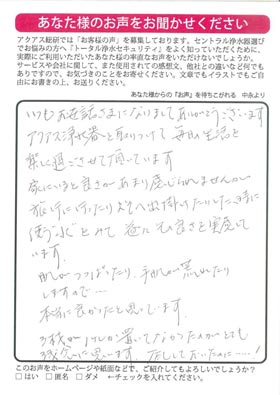 あなた様のお声をお聞かせください
アクアス総研では『お客様の声』を募集しております。セントラル浄水器選び
でお悩みの方へ『トータル浄水セキュリティ』をよく知っていただくために、
実際にご利用いただいたあなた様の率直なお声をいただけないでしょうか。
サービスや会社に関して、また使用されての感想文、他社との違いなど何でも
ありですので、お気づきのことをお寄せください。文章でもイラストでもご自
由にお書きの上、お送りください。
あなた様からの『お声』を待ちこがれる 中永より
いつもお世話さまになりましてありがとうございます
アクアス浄水器を取りつけて 毎日の生活を
楽に過ごさせて頂いています
家にいると良さがあまり感じられませんが
旅行に行ったり よそへ出掛けたりした時に
使う"水"をみて
います
肌がつっぱったり、手肌が荒れたり
しますので…
本当に良かったと思っています。
このお声をホームページや紙面などで、ご紹介してもよろしいでしょうか?
□ はい □ 匿名 □ ダメ ←チェックを入れてください。